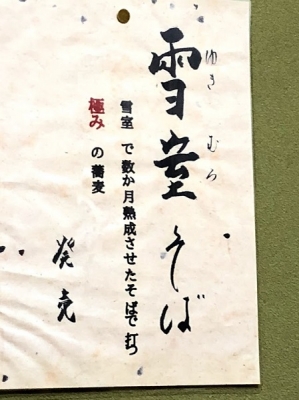 雪室そば
ゆきむろ
雪室で数か月熟成させたそばで打つ
極みの蕎麦
発売